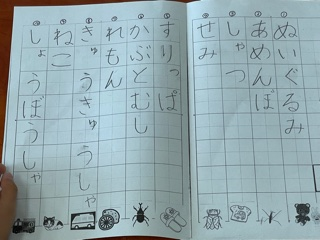 ① ぬいぐるみ
② あめんぼ
③ しゃつ
④ せみ
すりっぱ
かぶとむし
れもん
きゅうきゅうしゃ
ねこ
しょうぼうしゃ